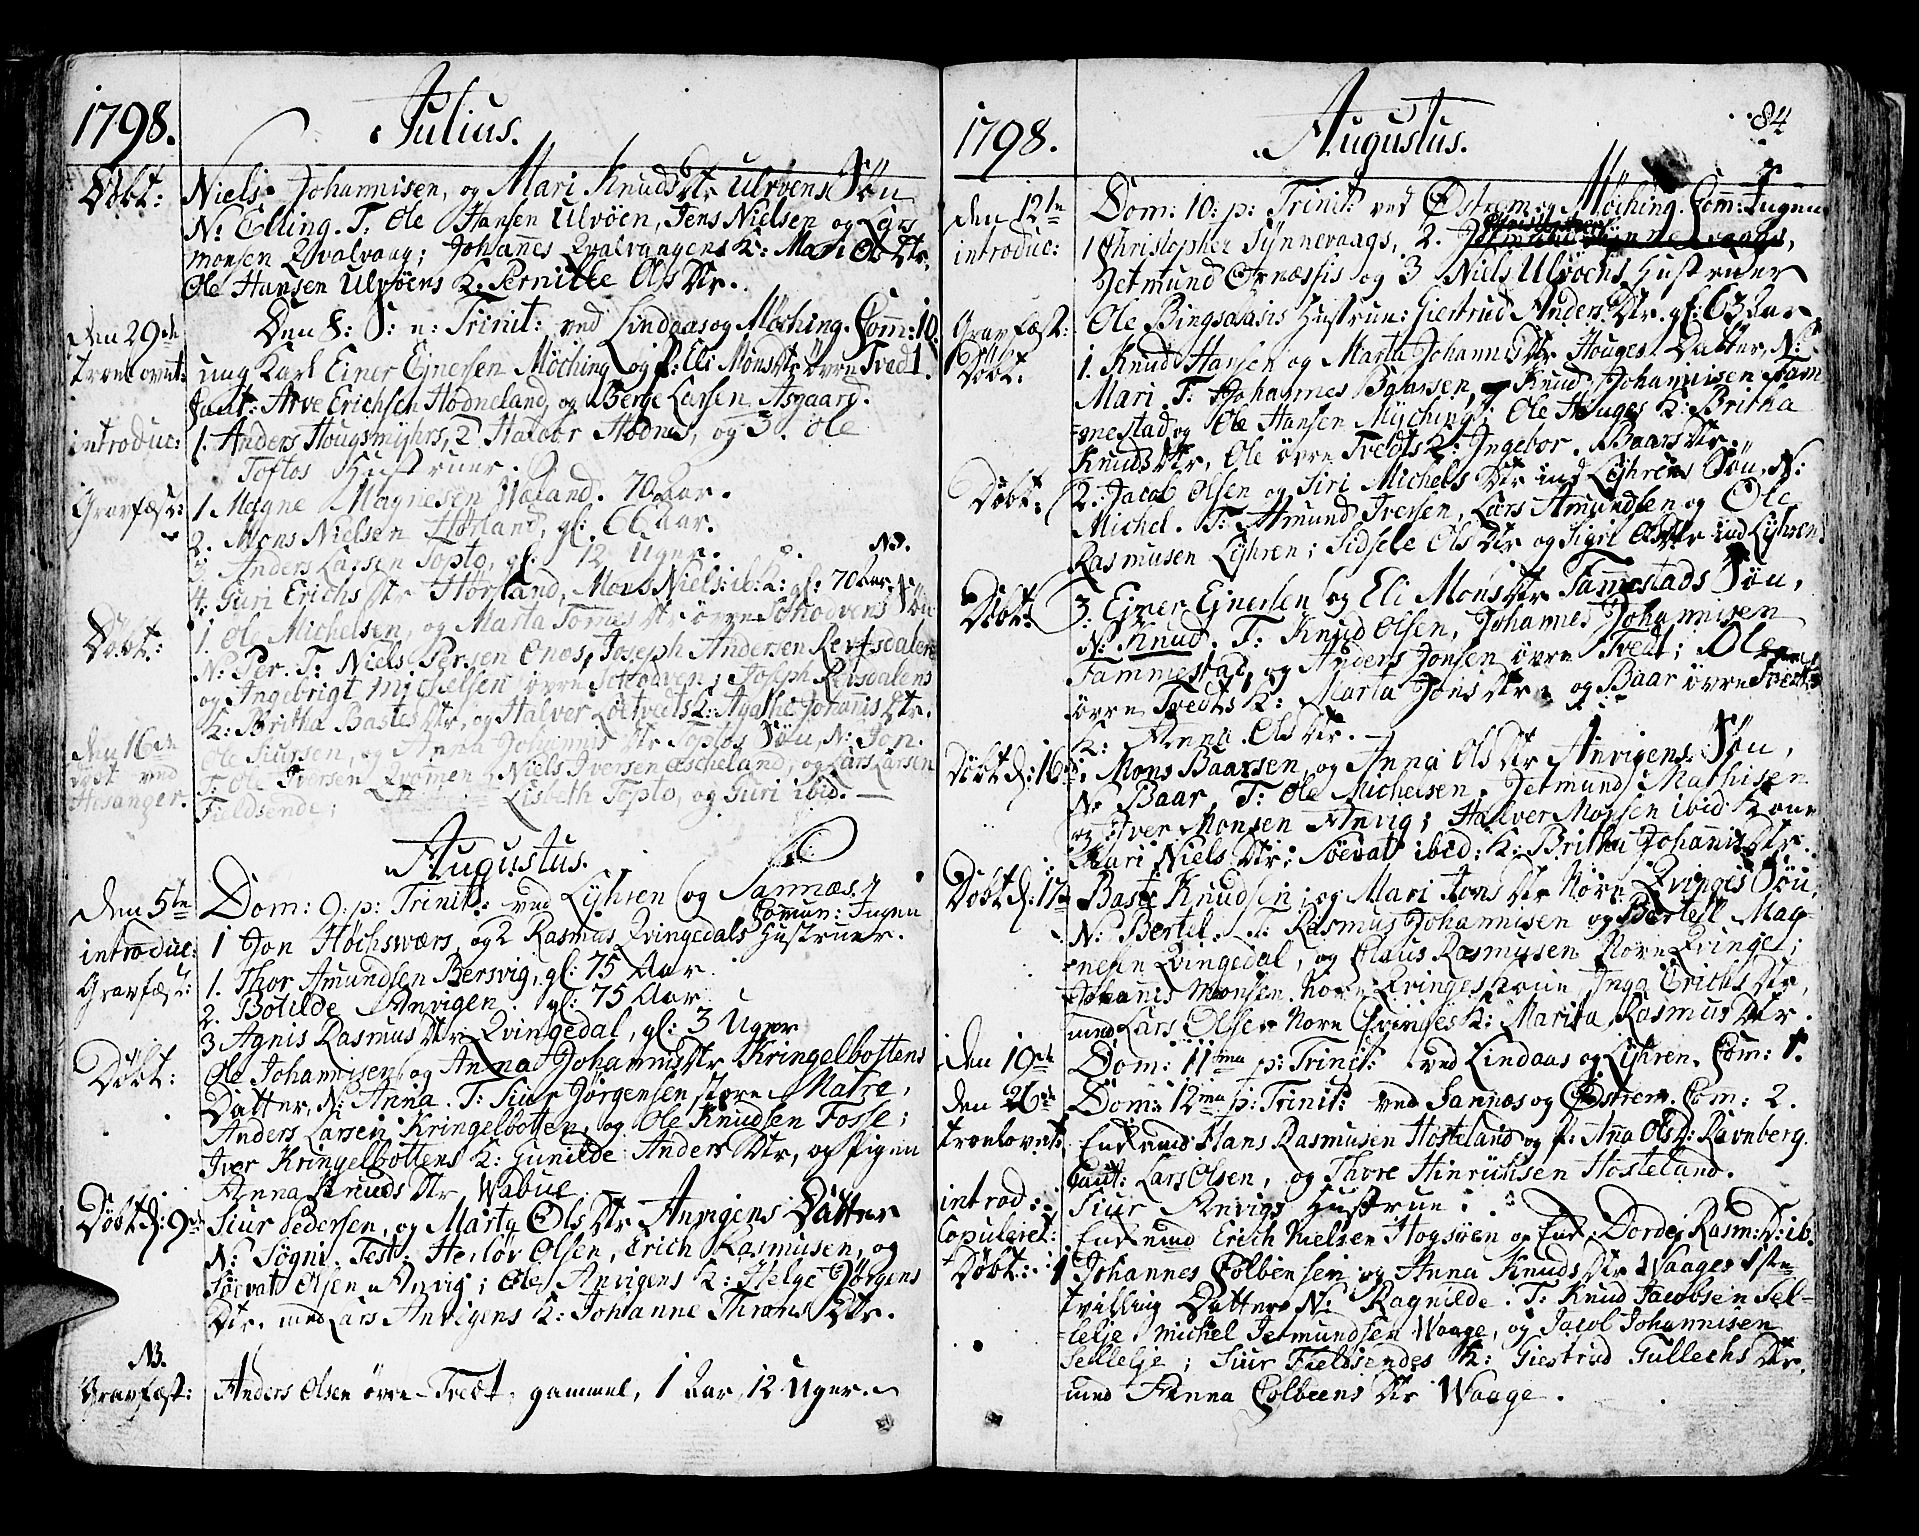 1798. Julius.
Døbt: Niels Johannisen, og Mari Knuds Dtr Ulvøens Søn
N: Elling. T: Ole Hansen Ulvöen, Jens Nielsen og Lars
monsen Qvalvaag; Johanes Qvalvaagens K: Mari Ols Dtr,
Ole Hansen Ulvöens K: Pernille Ols Dtr.
Den 29de Den 8: S: e: Trinit: ved Lindaas og Möching. Com: 10.
Trolovet: ung Karl Einer Ejnersen Möching og p: Eli Mons Dtr övre Tvedt.
Caut: Arve Erichsen Hodneland, og Berge Larsen Asgaard.
introduc: 1. Anders Hougsmyhrs, 2. Halvor Hodnes, og 3. Ole
Toftos Hustruer.
Gravfæst: 1 Magne Magnesen Wæland. 70 Aar.
2. Mons Nielsen Hörland, gl: 66 Aar.
3. Anders Larsen Topto, gl: 12 Uger. NB.
4. Guri Erichs Dtr Hörland, Mons Niels: ib: K: gl: 70 Aar
Döbt: 1. Ole Michelsen, og Marta Tomas Dtr övre Sohodvens Sön
N: Per. T: Niels Persen Enæs, Joseph Andersen Reisdalen
og Ingebrigt Michelsen övre Sohodven; Joseph Reisdalens
K: Britha Bastes Dtr, og Halver Loetvedts K: Agathe Johannis Dtr.
den 16de Ole Siursen, og Anna Johannis Dtr Toptos Sön, N: Jon.
døbt ved T: Ole Iversen Qvamen, Niels Iversen Æscheland, og Lars Larsen
Hosanger. Fieldsende; Lisbeth Topto, og Guri ibid.
Augustus.
Den 5te Dom: 9: p: Trinit: ved Lyhren og Sannæs.
Comun: Ingen
introduc: 1 Jon Höchsværs, og 2 Rasmus Qvingedals Hustruer.
Gravfæst: 1. Thor Amundsen Bersvig, gl: 75 Aar.
2. Botilde Anvigen. gl: 75 Aar
3 Agnis Rasmus Dtr Qvingedal, gl: 3 Uger
Döbt: Ole Johannisen og Anna Johannis Dtr Kringelbottens
Datter, N: Anna. T: Siur Jörgensen store Matre,
Anders Larsen Kringelbotten, og Ole Knudsen Fosse;
Iver Kringelbottens K: Gunilde Anders Dtr, og Pigen
Anna Knuds Dtr Wabue
Döbt d: 9de Siur Pedersen, og Marta Ols Dtr Anvigens Datter
N: Sögni. Test: Herlöv Olsen, Erich Rasmusen, og
Söevat Olsen Anvig; Ole Anvigens K: Helge Jörgens
Dtr. med Lars Anvigens K: Johanne Thrones Dtr.
NB.
Gravfæst: Anders Olsen övre Tvedt, gammel, 1 Aar, 12 Uger.
1798. Augustus. 84
den 12te Dom: 10: p: Trinit: ved Østrem og Möching. Com: Ingen
introduc: 1 Christopher Synnevaags, 2.
Jetmund Ornæssis og 3 Niels Ulvöchs Hustruer
Gravfæst: Ole Bingsaasis Hustrue: Giertrud Anders Dtr. gl: 63 Aar.
Döbt. 1. Knud Hansen og Marta Johannis Dtr Houges Datter, N:
Mari. T: Johannes Baarsen, Knud Johannisen Fam-
mestad og Ole Hansen Myching; Ole Houges K: Britha
Knuds Dtr, Ole övre Tvedts K: Ingebor. Baars Dtr.
Döbt: 2. Jacob Olsen og Siri Michels Dtr ind Lyhrens Sön, N:
Michel. T: Amund Iversen, Lars Amundsen og Ole
Rasmusen Lyhren; Sidsele Ols Dtr og Sigri Ols Dtr ind Lyhren
Döbt: 3. Ejner Ejnersen og Eli Mons Dtr Fammestads Sön,
N: Knud. T: Knud Olsen, Johannes Johannisen
Fammestad, og Anders Jonsen övre Tvedt; Ole
övre Tvedts K: Marta Jons Dtr og Baar övre Tvedts
K: Anna Ols Dtr.
Döbt d: 16de Mons Baarsen, og Anna Ols Dtr Anvigens Sön,
N: Baar. T: Ole Michelsen, Jetmund Mathisen
og Iver Monsen Anvig; Halver Monsen ibid: Kone
Mari Niels Dtr; Söevat ibid: K: Britha Johannis Dtr.
Döbt d: 17de Baste Knudsen, og Mari Jons Dtr Nöre Qvinges Sön,
N: Bertel. T: Rasmus Johannisen og Bertel Mag-
nesen Qvingedal, og Claus Rasmusen Nore Qvinge;
Johannes Monsen Nore Qvinges Kone Inga Erichs Dtr,
med Lars Olsen Nore Qvinges K: Marita Rasmus Dtr.
den 19de Dom: 11ma p: Trinit: ved Lindaas og Lyhren. Com: 1.
den 26de Dom: 12ma p: Trinit: ved Sannæs og Østrem. Com: 2.
Trolovet: Enkemd Hans Rasmusen Hosteland og p: Anna Ols D: Ravnberg.
Caut: Lars Olsen, og Thore Hinrichsen Hosteland.
introd: Siur Anvigs Hustrue
Copuleret: Enkemd Erich Nielsen Hogsöen og Enk: Dorde Rasm: D: ib.
Döbt: 1 Johannes Colbensen og Anna Knuds Dtr Waages 1ste
tvilling Datter N: Ragnilde. T: Knud Jacobsen Sel-
lelje, Michel Jetmundsen Waage, og Jacob Johannisen
Sellelje; Siur Fieldsendes K: Giestrud Gullechs Dtr.
med Anna Colbeens Dtr Waage.